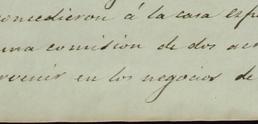 concedieron á la casa espe
una comision de dos
rvenir en los negocios de